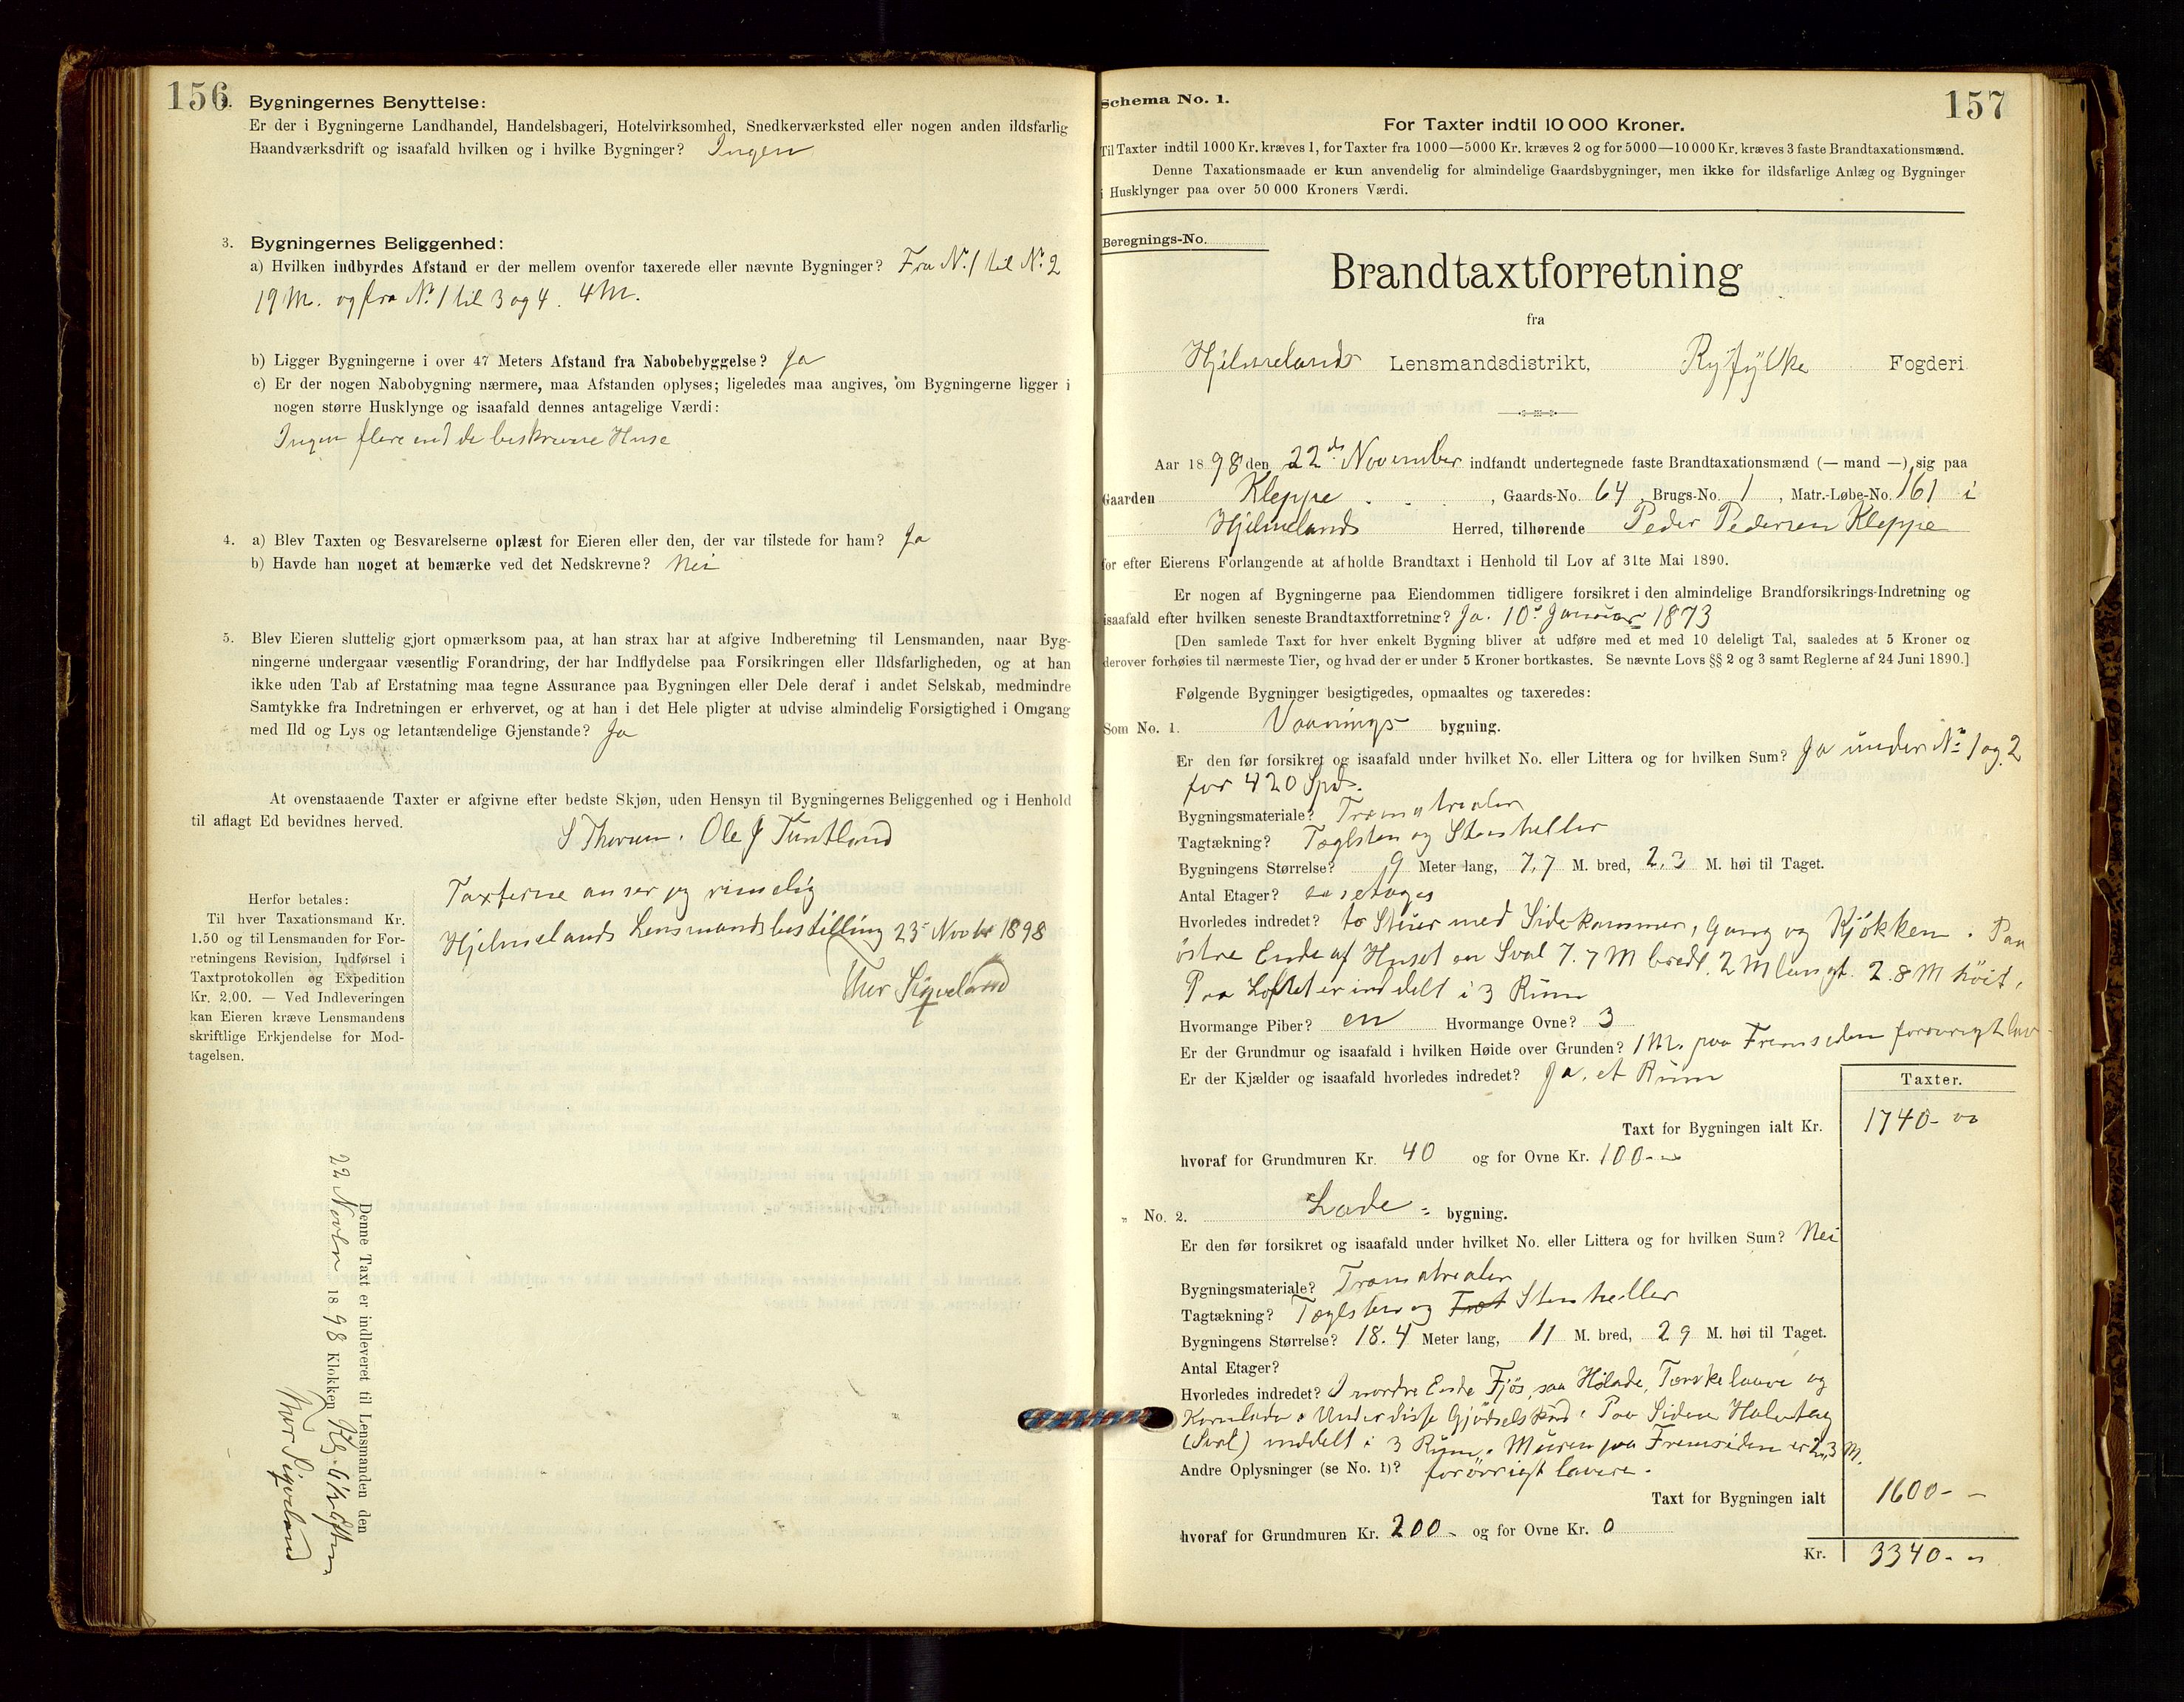 156
Bygningernes Benyttelse:
Er der i Bygningerne Landhandel, Handelsbageri, Hotelvirksomhed, Snedkerværksted eller nogen anden ildsfarlig
Haandværksdrift og isaafald hvilken og i hvilke Bygninger? Ingen
3. Bygningernes Beliggenhed:
a) Hvilken indbyrdes Afstand er der mellem ovenfor taxerede eller nævnte Bygninger? Fra No. 1 til No. 2
19 M. og fra No 1 til 3 og 4. 4 M.
b) Ligger Bygningerne i over 47 Meters Afstand fra Nabobebyggelse? Ja
c) Er der nogen Nabobygning nærmere, maa Afstanden oplyses; ligeledes maa angives, om Bygningerne ligger i
nogen større Husklynge og isaafald dennes antagelige Værdi:
Ingen flere end de beskrevne Huse
4. a) Blev Taxten og Besvarelserne oplæst for Eieren eller den, der var tilstede for ham? Ja
b) Havde han noget at bemærke ved det Nedskrevne? Nei
5. Blev Eieren sluttelig gjort opmærksom paa, at han strax har at afgive Indberetning til Lensmanden, naar Byg-
ningerne undergaar væsentlig Forandring, der har Indflydelse paa Forsikringen eller Ildsfarligheden, og at han
ikke uden Tab af Erstatning maa tegne Assurance paa Bygningen eller Dele deraf i andet Selskab, medmindre
Samtykke fra Indretningen er erhvervet, og at han i det Hele pligter at udvise almindelig Forsigtighed i Omgang
med Ild og Lys og letantændelige Gjenstande? Ja
At ovenstaaende Taxter er afgivne efter bedste Skjøn, uden Hensyn til Bygningernes Beliggenhed og i Henhold
til aflagt Ed bevidnes herved.
S Thorsen. Ole J Tuntland
Taxterne anser jeg rimelig
Hjelmelands Lensmandsbestilling 23 Novbr 1898
Thor Sigveland
Herfor betales:
Til hver Taxationsmand Kr.
1.50 og til Lensmanden for For-
retningens Revision, Indførsel i
Taxtprotokollen og Expedition
Kr. 2.00. — Ved Indleveringen
kan Eieren kræve Lensmandens
skriftlige Erkjendelse for Mod-
tagelsen.
Denne Taxt er indleveret til Lensmanden den
22 Novbr 1898 Klokken
Thor Sigveland
157
Schema No. 1.
For Taxter indtil 10 000 Kroner.
Til Taxter indtil 1000 Kr. kræves 1, for Taxter fra 1000—5000 Kr. kræves 2 og for 5000—10000 Kr. kræves 3 faste Brandtaxationsmænd.
Denne Taxationsmaade er kun anvendelig for almindelige Gaardsbygninger, men ikke for ildsfarlige Anlæg og Bygninger
i Husklynger paa over 50 000 Kroners Værdi.
Beregnings-No.
Brandtaxtforretning
fra
Hjelmelands Lensmandsdistrikt, Ryfylke Fogderi
Aar 1898 den 22de November indfandt undertegnede faste Brandtaxationsmænd (— mand —) sig paa
Gaarden Kleppe, Gaards-No. 64, Brugs-No. 1, Matr.-Løbe-No. 161 i
Hjelmelands Herred, tilhørende Peder Pedersen Kleppe
for efter Eierens Forlangende at afholde Brandtaxt i Henhold til Lov af 31te Mai 1890.
Er nogen af Bygningerne paa Eiendommen tidligere forsikret i den almindelige Brandforsikrings-Indretning og
isaafald efter hvilken seneste Brandtaxtforretning? Ja. 10. Januar 1873
[Den samlede Taxt for hver enkelt Bygning bliver at udføre med et med 10 deleligt Tal, saaledes at 5 Kroner og
derover forhøies til nærmeste Tier, og hvad der er under 5 Kroner bortkastes. Se nævnte Lovs §§ 2 og 3 samt Reglerne af 24 Juni 1890.]
Følgende Bygninger besigtigedes, opmaaltes og taxeredes:
Som No. 1. Vaanings bygning.
Er den før forsikret og isaafald under hvilket No. eller Littera og for hvilken Sum? Ja under No 1 og 2
for 420 Spd.
Bygningsmateriale? Træmatrealer
Tagtækning? Taglsten og Stenheller
Bygningens Størrelse? 9 Meter lang, 7,7 M. bred, 2,3 M. høi til Taget.
Antal Etager? en etages
Hvorledes indredet? to Stuer med Sidekammer, Gang og Kjøkken. Paa
östre Ende af Huset en Sval 7.7 M bredt. 2 M langt. 2.8 M höit.
Paa Loftet er inddelt i 3 Rum
Hvormange Piber? en Hvormange Ovne? 3
Er der Grundmur og isaafald i hvilken Høide over Grunden? 1 M. paa Fremsiden forøvrigt lav
Er der Kjælder og isaafald hvorledes indredet? Ja. et Rum
Taxter.
Taxt for Bygningen ialt Kr. 1740- 00
hvoraf for Grundmuren Kr. 40 og for Ovne Kr. 100-
„ No. 2. Lade bygning.
Er den før forsikret og isaafald under hvilket No. eller Littera og for hvilken Sum? Nei
Bygningsmateriale? Træmatrealer
Tagtækning? Taglsten og Stenheller
Bygningens Størrelse? 18.4 Meter lang, 11 M. bred, 2 9 M. høi til Taget.
Antal Etager?
Hvorledes indredet? I nordre Ende Fjös, saa Hölade, Tærskelaave og
Kornlade. Under disse Gjödsels Paa Siden Halvtag
(Sval) inddelt i 3 Rum. Muren paa Fremsiden er 2,3 M.
Andre Oplysninger (se No. 1)? forövrigt lavere.
Taxt for Bygningen ialt 1600- -
hvoraf for Grundmuren Kr. 200- og for Ovne Kr. 0
Kr. 3340-